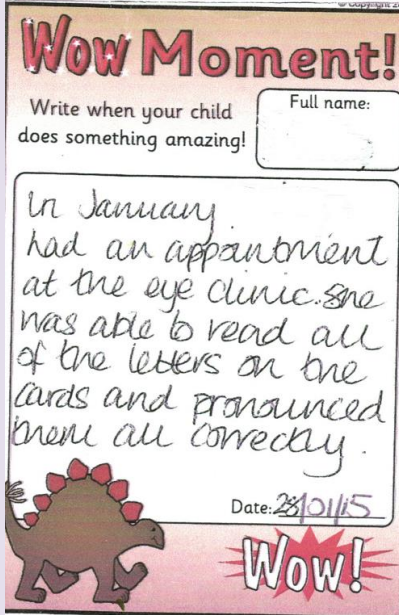 Wow Moment!
Write when your child
does something amazing!
Full name:
In January
had an appointment
at the eye clinic. She
was able to read all
of the letters on the
cards and pronounced
them all correctly.
Date: 28/01/15
Wow!